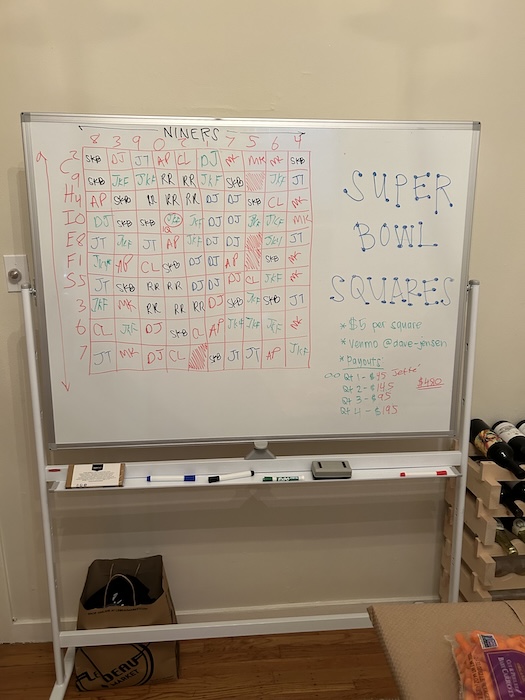 NINERS
8 3 9 0 2 1 7 5 6 4
C 2 SKB DJ JT AP CL DJ MK MK MK SKB
9 SKB JKF JKF RR RR JKF SKB JKF JT
H 4 AP SKB RR RR RR DJ DJ SKB CL MK
I 0 DJ SKB SKB JKF DJ DJ JKF JKF MK
E 8 JT JKF JT AP JKF DJ DJ JKF JT
F 1 JKF AP CL SKB DJ DJ AP SKB MK
S 5 JT SKB CL RR RR DJ DJ CL JKF SKB
3 JKF MK RR RR RR DJ SKB JKF SKB JT
6 CL JKF DJ SKB CL AP JKF JKF SKB MK
7 JT MK DJ CL SKB JT JT AP JKF
SUPER
BOWL
SQUARES
* $5 per square
* Venmo @dave-jensen
* Payouts:
Qt 1 - $45 Jette
Qt 2 - $145
Qt 3 - $95
Qt 4 - $195
$480
MARKET